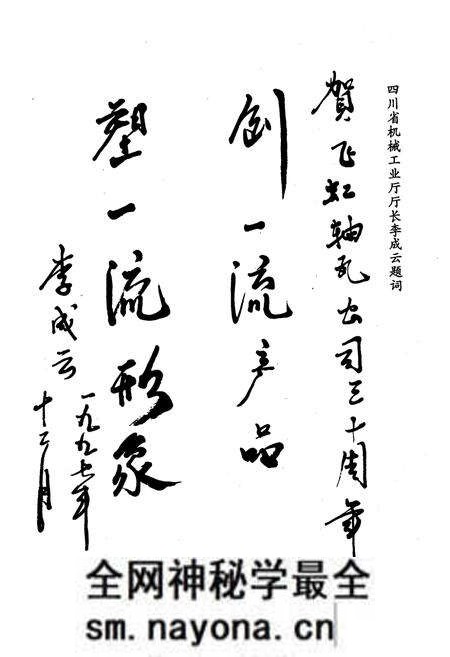 四川省机械工业厅厅长李成云题词
賀飞虹轴瓦公司三十周年
创一流产品
塑一流形象
李成云
一九九七年
十二月
全网神秘学最全
sm.nayona.cn